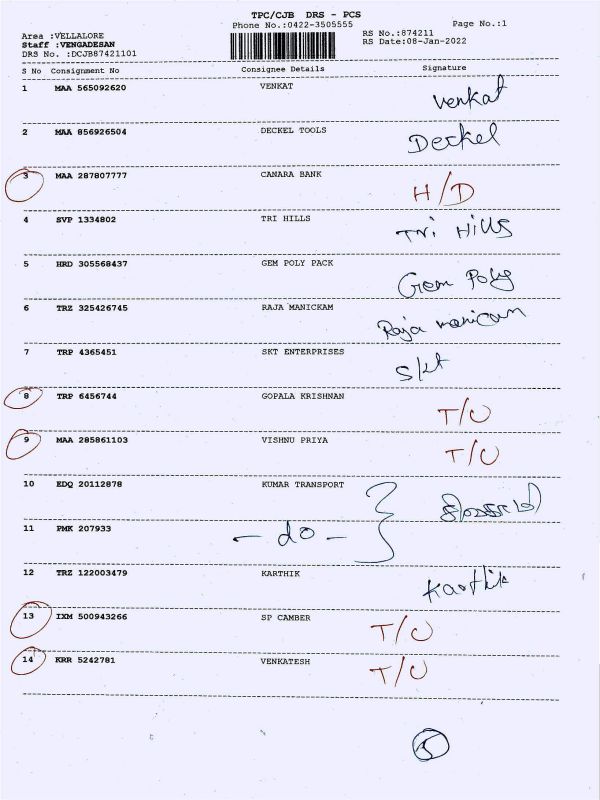 TPC/CJB DRS - PCS
Phone No.:0422-3505555
Page No.:1
Area :VELLALORE
Staff :VENGADESAN
DRS No. :DCJB87421101
RS No.:874211
RS Date:08-Jan-2022
S No Consignment No Consignee Details Signature
1 MAA 565092620 VENKAT Venkat
2 MAA 856926504 DECKEL TOOLS Deckel
3 MAA 287807777 CANARA BANK H/D
4 SVP 1334802 TRI HILLS Tri Hills
5 HRD 305568437 GEM POLY PACK Gem Poly
6 TRZ 325426745 RAJA MANICKAM Raja manicam
7 TRP 4365451 SKT ENTERPRISES Skt
8 TRP 6456744 GOPALA KRISHNAN T/O
9 MAA 285861103 VISHNU PRIYA T/O
10 EDQ 20112878 KUMAR TRANSPORT
11 PMK 207933 - do -
12 TRZ 122003479 KARTHIK Karthik
13 IXM 500943266 SP CAMBER T/O
14 KRR 5242781 VENKATESH T/O